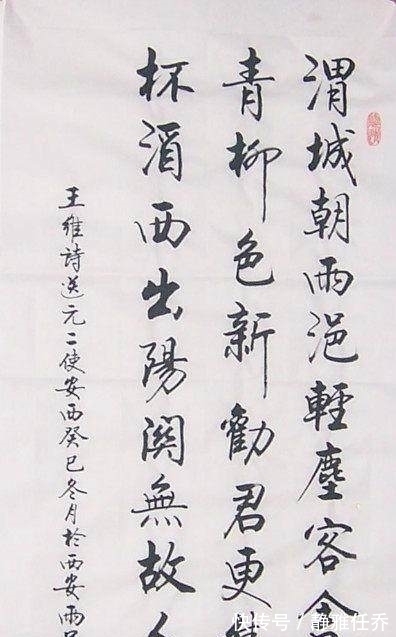 渭城朝雨浥輕塵客
青柳色新勸君更
杯酒西出陽關無故人
王維詩送元二使安西癸巳冬月於西安雨
快传号 / 静雅任乔